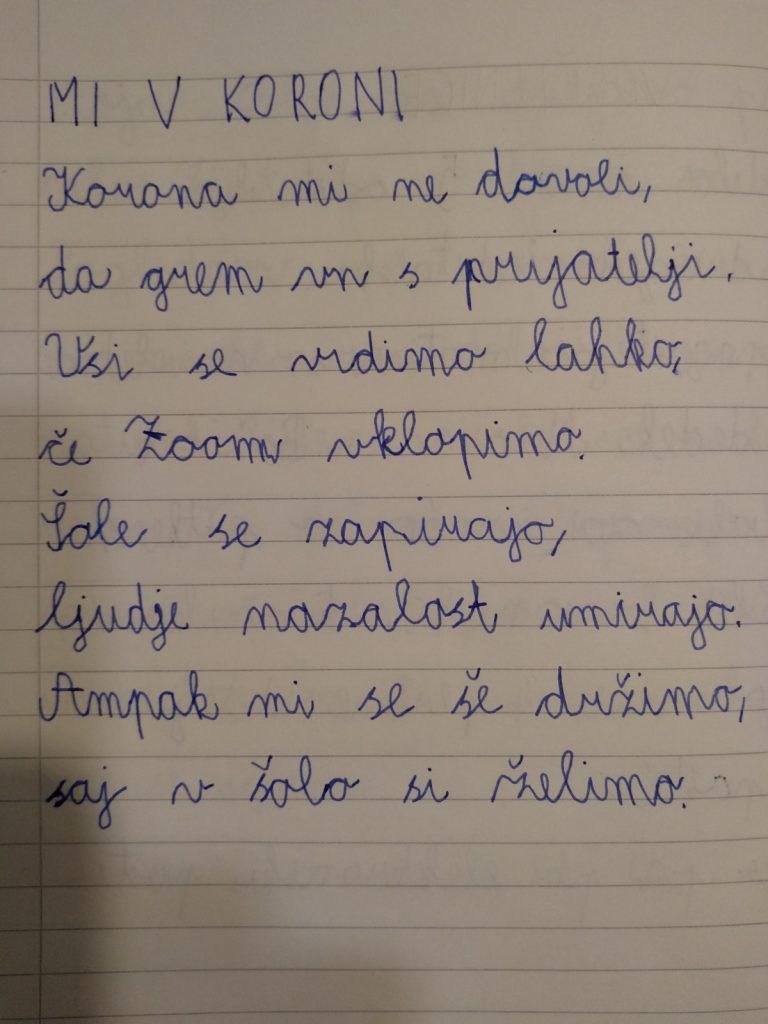 MI V KORONI
Korona mi ne dovoli,
da grem vn s prijatelji.
Vsi se vidimo lahko,
če Zoom vklopimo.
Šole se zapirajo,
ljudje nazalost umirajo.
Ampak mi se še družimo,
saj v šolo si želimo.